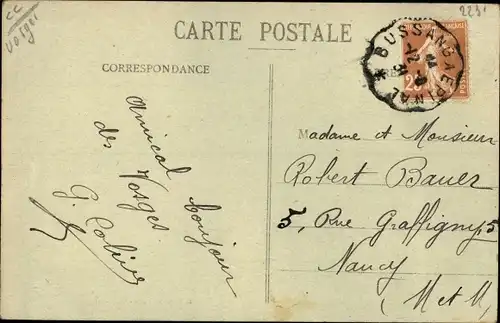 CC
Vosges
2231
CARTE POSTALE
CORRESPONDANCE
BUSSANG A EPINAL
Amical bonjour
des Vosges
G. Colin
Madame et Monsieur
Robert Bauer
5, Rue Graffigny 5
Nancy
(M et M)